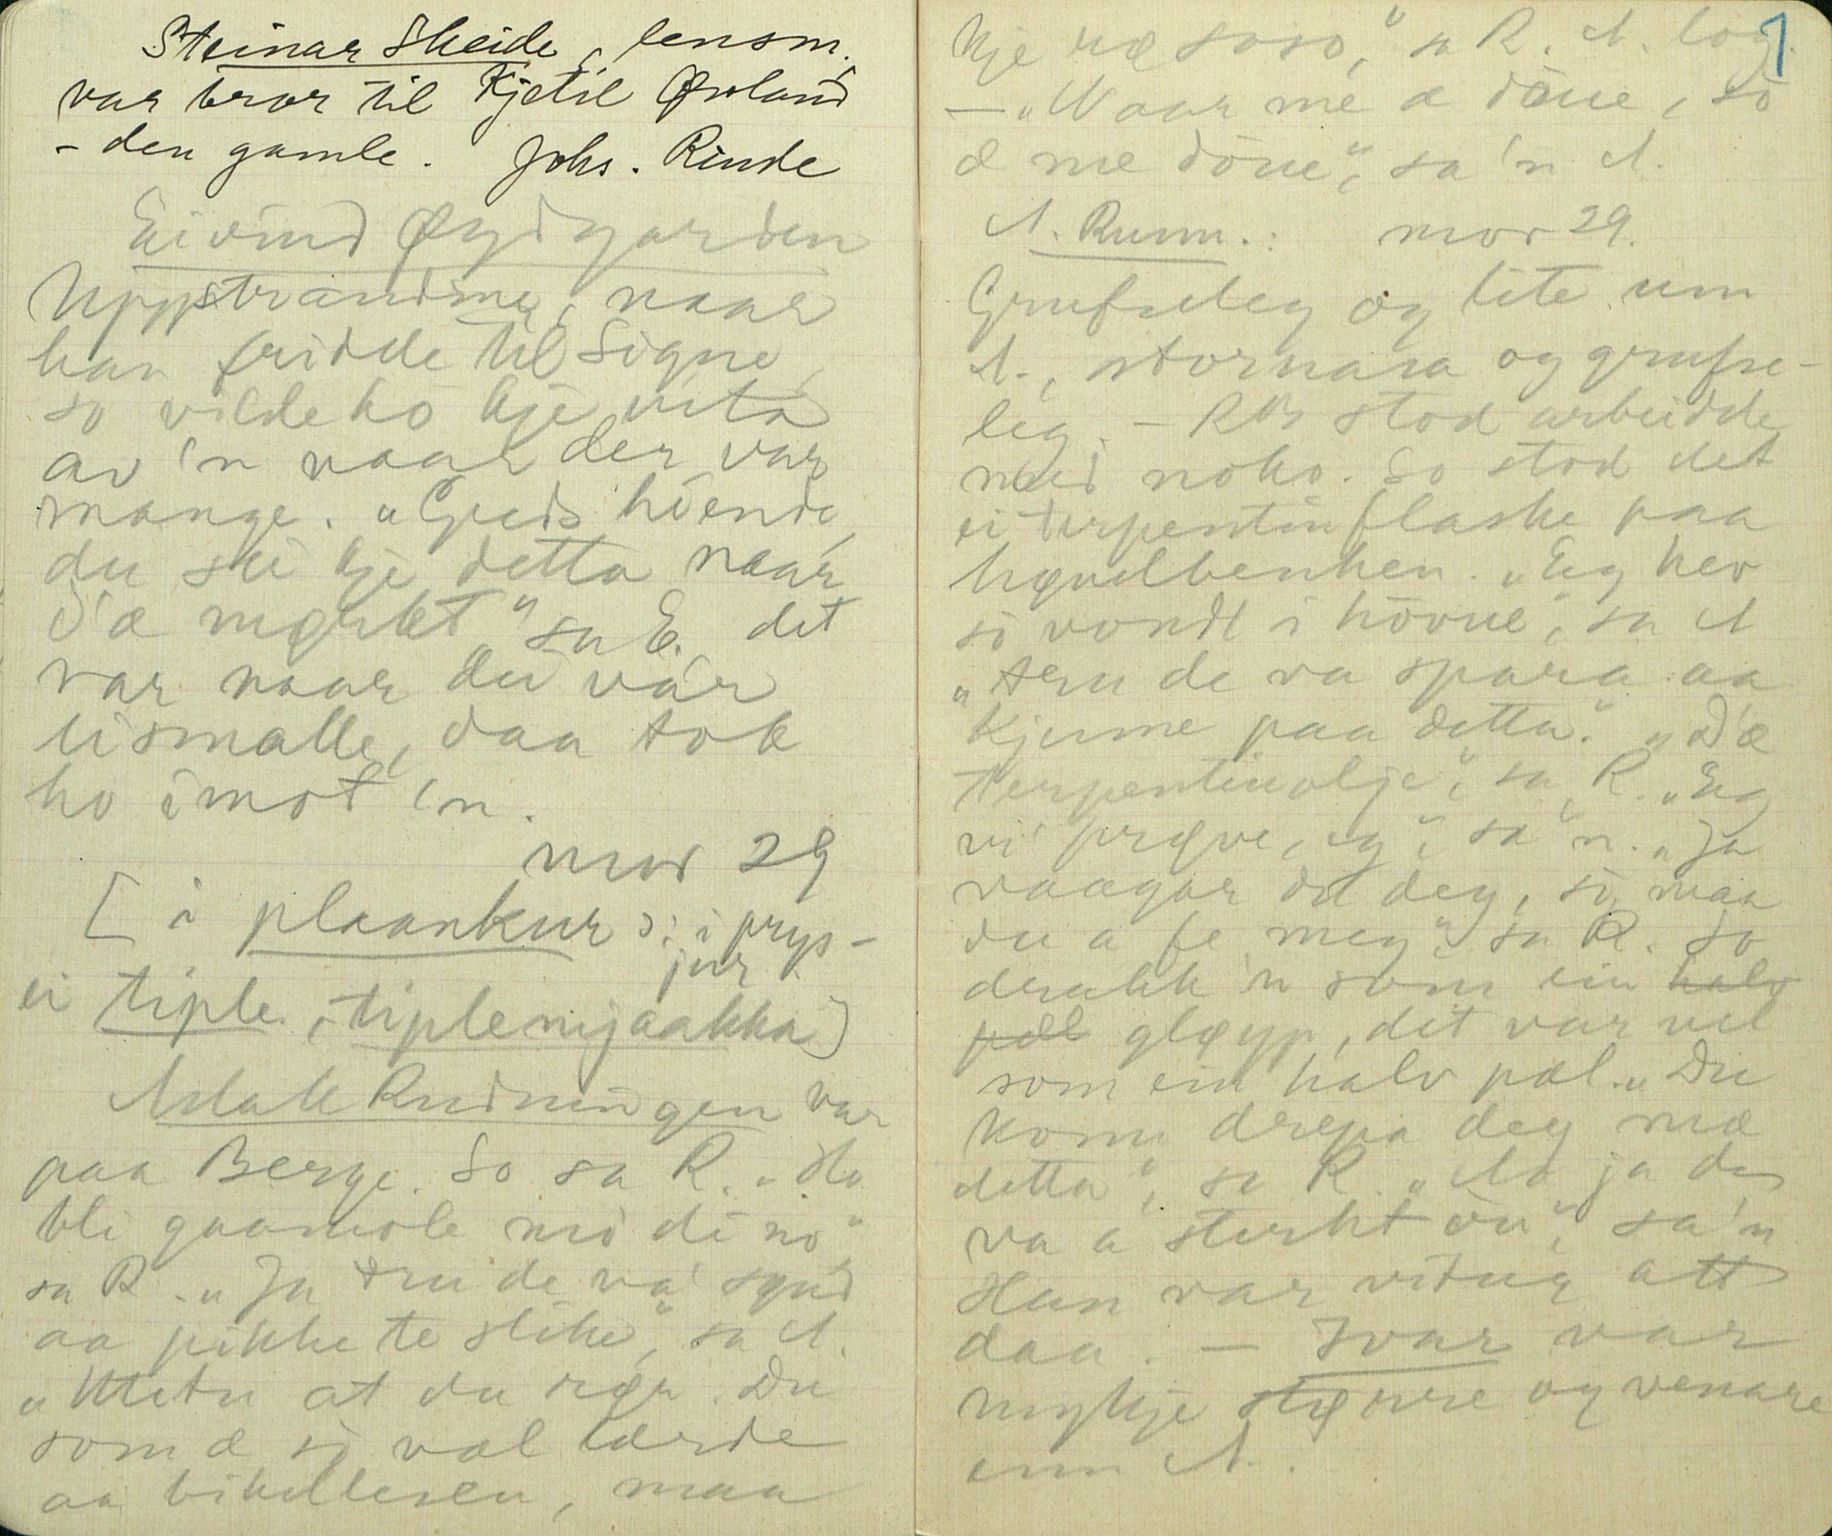 Steinar Skeide, lensm.
var bror til Kjetil Øvland
- den gamle. Johs. Rinde
Eivind Øygarden
Uppstrandine, naar
han fridde til Signe,
so vilde ho kje vita
av 'n naar der var
mange. "Guds hoende,
du ser kje detta naar
d'æ mørkt" sa E. det
var naar dei var
eismalle, daa tok
ho imot 'n.
mor 29
[i plaankur ɔ: i prys-
jur
ei tiple, tiplemjaakka]
Aslak Rudningen var
paa Berge. So sa R. "Ho
bli gaamole mo di no"
sa R. "Ja tru de va' synd
aa pikke te slike", sa A.
"Uttetu at du seger. Du
som æ so væl lærde
aa bibellesen, maa
kje ræ soso," sa R. A. log.
- "Naar me æ døue, so
æ me døue", sa 'n A.
A. Runn.: mor 29.
Grufseleg og lite um
A., stornasa og grufse-
leg. - RN stod arbeidde
med noko. So stod det
ei terpentinflaske paa
høvelbenken. "Eg hev
so vondt i hovue", sa A
"tru de va spara aa
kjenne paa detta." "D'æ
terpentinolje", sa R. "Eg
vi prøve, eg", sa 'n. "Ja
vaagar du deg, so maa
du a fe meg" sa R. So
drakk 'n som ein halv
pæl gløyp, det var vel
som ein halv pæl. "Du
konn drepa deg mæ
detta", sa R. "Aa ja da
va a sterkt óu", sa 'n
Han var vidug att
daa. - Ivar var
mykje større og venare
enn A.